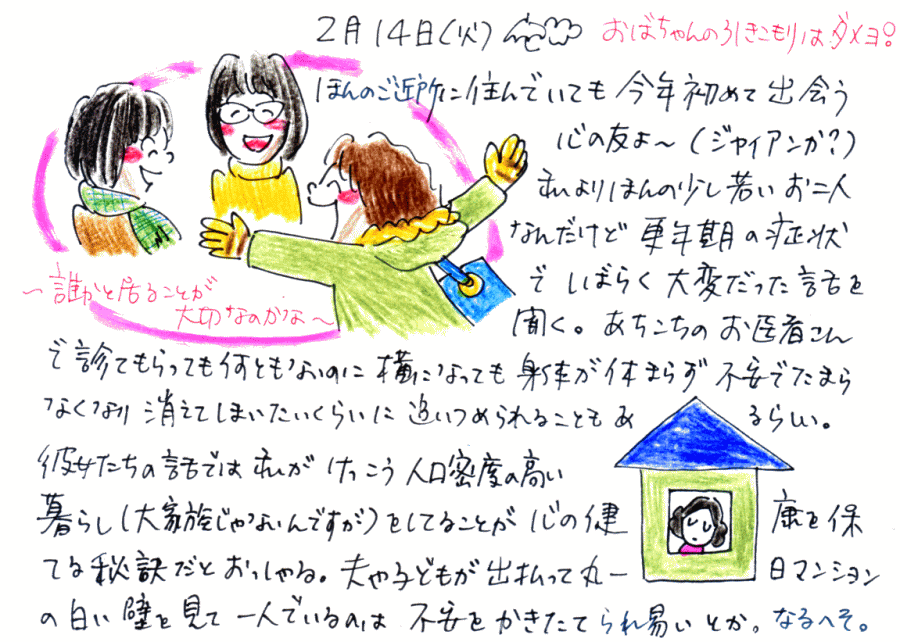 2月14日(火) おばちゃんの引きこもりはダメヨ!
ほんのご近所に住んでいても今年初めて出会う
心の友よ〜(ジャイアンか?)
私よりほんの少し若いお二人
なんだけど更年期の症状
でしばらく大変だった話を
聞く。あちこちのお医者さん
〜誰かと居ることが
大切なのかな〜
で診てもらっても何ともないのに横になっても身体が休まらず不安でたまら
なくなり消えてしまいたいくらいに追いつめられることもあるらしい。
彼女たちの話では私がけっこう人口密度の高い
暮らし(大家族じゃないんですが)をしてることが心の健康を保
てる秘訣だとおっしゃる。夫や子どもが出払って丸一日マンション
の白い壁を見て一人でいるのは不安をかきたてられ易いとか。なるへそ。